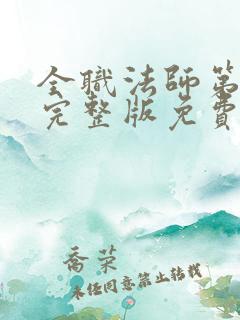 全職法師第
完整版免費
喬榮
未經同意禁止轉載